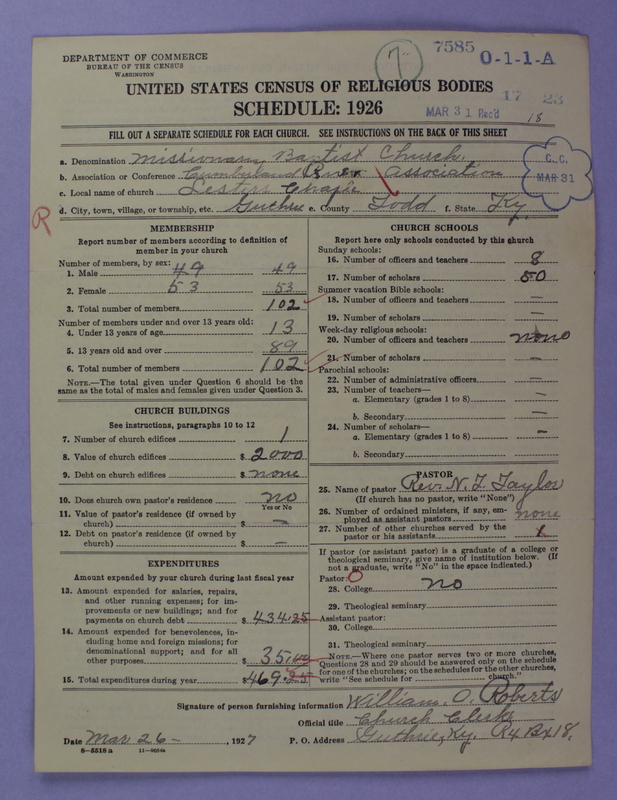 7
7585
O-1-1-A
DEPARTMENT OF COMMERCE
BUREAU OF THE CENSUS
WASHINGTON
UNITED STATES CENSUS OF RELIGIOUS BODIES
SCHEDULE: 1926
MAR 31 Rec'd
17 23
18
FILL OUT A SEPARATE SCHEDULE FOR EACH CHURCH. SEE INSTRUCTIONS ON THE BACK OF THIS SHEET
C. C.
MAR 31
a. Denomination Missionary Baptist Church
b. Association or Conference Cumberland River Association
c. Local name of church Lesters Chaple
d. City, town, village, or township, etc. Guthrie e. County Todd f. State Ky.
R
MEMBERSHIP
Report number of members according to definition of
member in your church
Number of members, by sex:
1. Male 49 49
2. Female 53 53
3. Total number of members 102
Number of members under and over 13 years old:
4. Under 13 years of age 13
5. 13 years old and over 89
6. Total number of members 102
NOTE.—The total given under Question 6 should be the
same as the total of males and females given under Question 3.
CHURCH BUILDINGS
See instructions, paragraphs 10 to 12
7. Number of church edifices 1
8. Value of church edifices $ 2000
9. Debt on church edifices $ none
10. Does church own pastor's residence no
Yes or No
11. Value of pastor's residence (if owned by
church) $ —
12. Debt on pastor's residence (if owned by
church) $ —
EXPENDITURES
Amount expended by your church during last fiscal year
13. Amount expended for salaries, repairs,
and other running expenses; for im-
provements or new buildings; and for
payments on church debt $ 434.25
14. Amount expended for benevolences, in-
cluding home and foreign missions; for
denominational support; and for all
other purposes $ 35.00
15. Total expenditures during year $ 469.25
CHURCH SCHOOLS
Report here only schools conducted by this church
Sunday schools:
16. Number of officers and teachers 8
17. Number of scholars 50
Summer vacation Bible schools:
18. Number of officers and teachers —
19. Number of scholars —
Week-day religious schools:
20. Number of officers and teachers none
21. Number of scholars —
Parochial schools:
22. Number of administrative officers —
23. Number of teachers—
a. Elementary (grades 1 to 8) —
b. Secondary —
24. Number of scholars—
a. Elementary (grades 1 to 8) —
b. Secondary
PASTOR
25. Name of pastor Rev. N. T. Taylor
(If church has no pastor, write "None")
26. Number of ordained ministers, if any, em-
ployed as assistant pastors none
27. Number of other churches served by the
pastor or his assistants 1
If pastor (or assistant pastor) is a graduate of a college or
theological seminary, give name of institution below. (If
not a graduate, write "No" in the space indicated.)
Pastor: O
28. College no
29. Theological seminary
Assistant pastor:
30. College
31. Theological seminary
NOTE.—Where one pastor serves two or more churches,
Questions 28 and 29 should be answered only on the schedule
for one of the churches; on the schedules for the other churches,
write "See schedule for church."
Signature of person furnishing information William. O. Roberts
Official title Church Clerk
Date Mar 26 -, 1927 P. O. Address Guthrie, Ky. R4 Bx 18.
8-5518 a